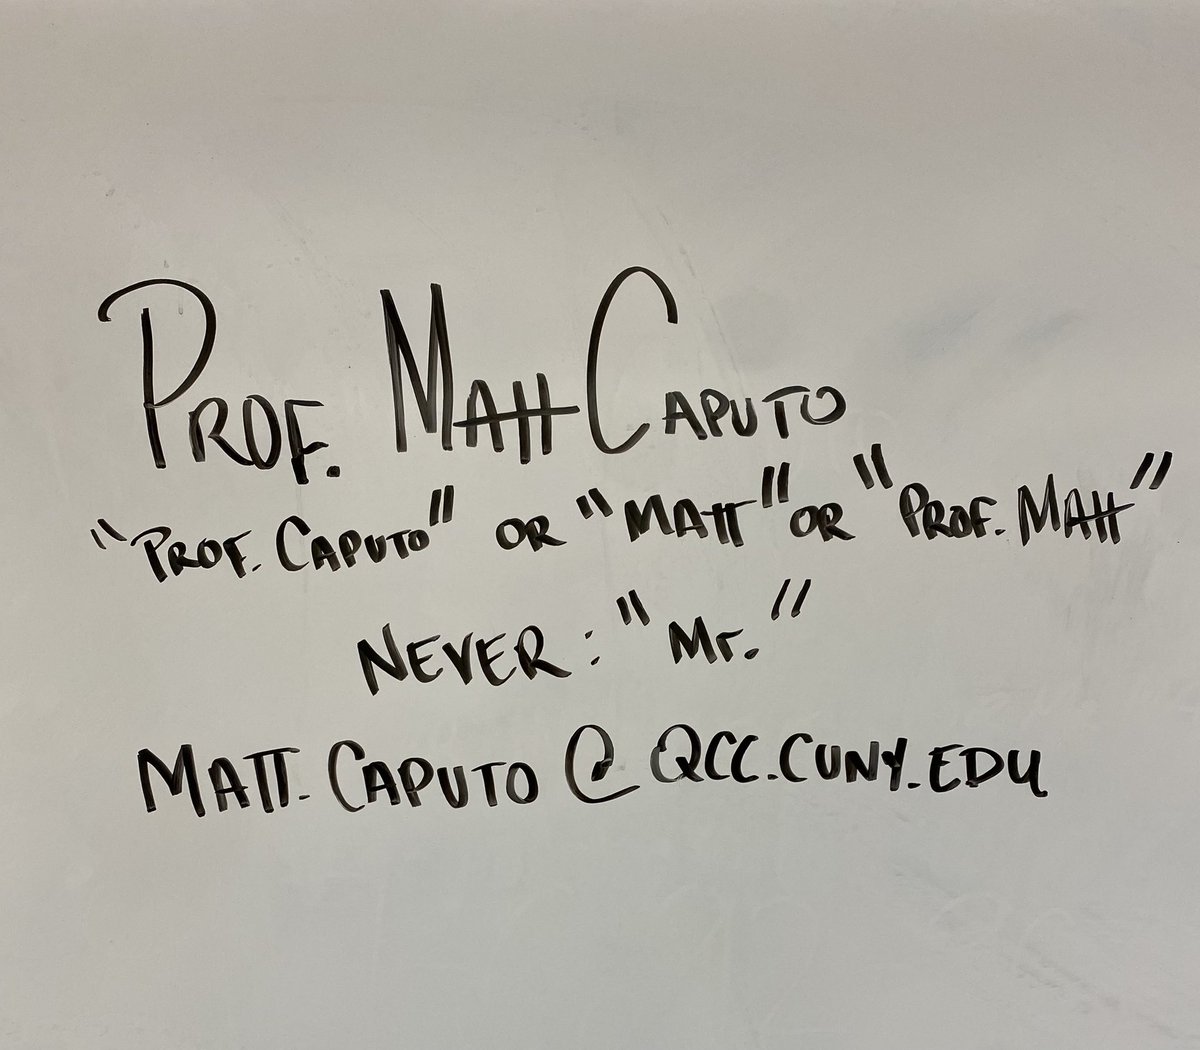 PROF. MATT CAPUTO
"PROF. CAPUTO" OR "MATT" OR "PROF. MATT"
NEVER: "Mr."
MATT.CAPUTO@QCC.CUNY.EDU